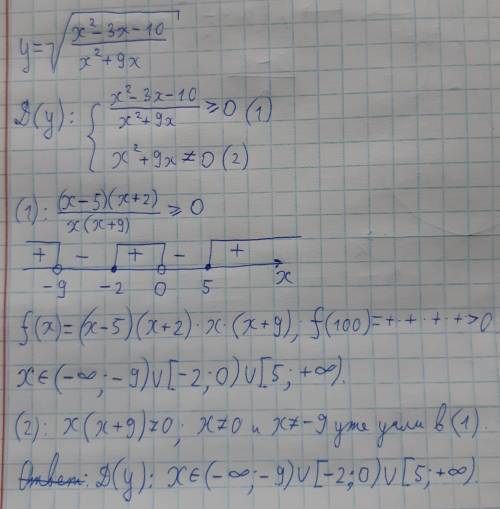 y=√((x²-3x-10)/(x²+9x))
D(y): { (x²-3x-10)/(x²+9x) ≥ 0 (1)
x²+9x ≠ 0 (2)
(1): ((x-5)(x+2))/(x(x+9)) ≥ 0
+ - + - +
-9 -2 0 5 x
f(x)=(x-5)(x+2)·x·(x+9); f(100)=+·+·+·+>0
x∈(-∞;-9)∪[-2;0)∪[5;+∞).
(2): x(x+9)≠0; x≠0 и x≠-9 уже учли в (1).
Ответ: D(y): x∈(-∞;-9)∪[-2;0)∪[5;+∞).